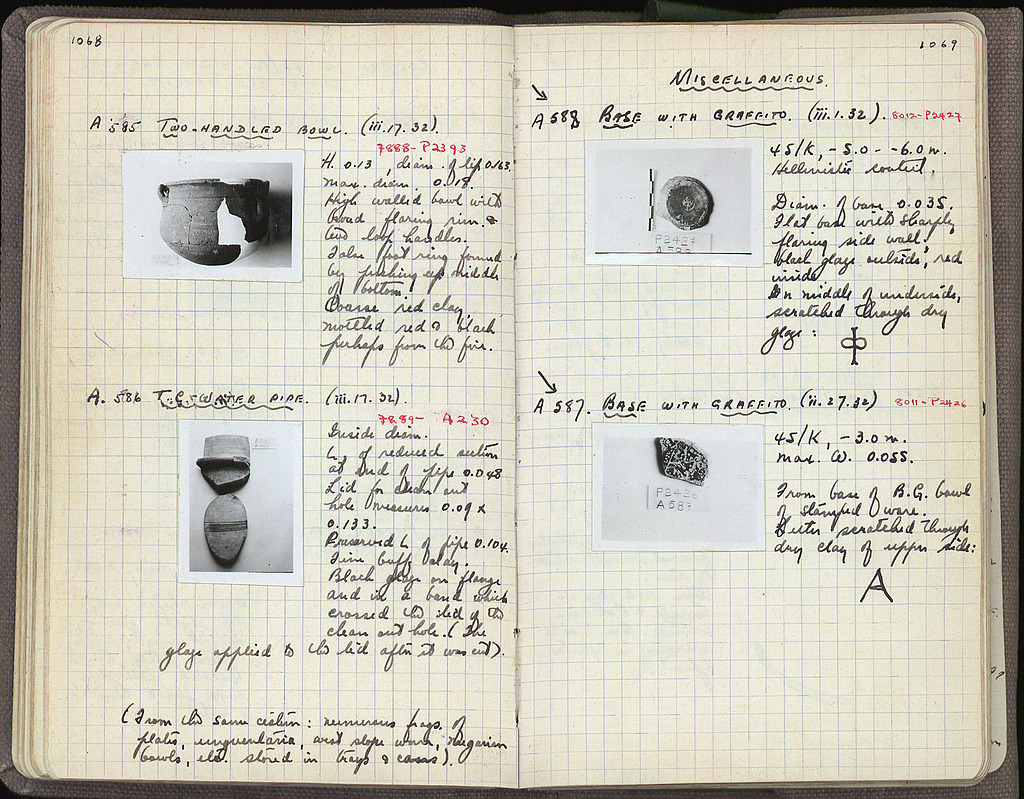 1068
A 585 TWO-HANDLED BOWL. (iii.17.32).
7888-P2393
H. 0.13, diam. of lip 0.163.
max. diam. 0.18.
High walled bowl with
broad flaring rim &
two loop handles.
False foot ring formed
by pushing up middle
of bottom.
Coarse red clay,
mottled red & black
perhaps from the fire.
A. 586 T.C. WATER PIPE. (iii.17.32).
7889- A230
Inside diam.
L. of reduced section
at end of pipe 0.048
Lid for clean out
hole measures 0.09 x
0.133.
Preserved L. of pipe 0.104.
Fine buff clay.
Black glaze on flange
and in a band which
crossed the lid of the
clean out hole. (The
glaze applied to the lid after it was cut).
(From the same cistern: numerous frags. of
plates, unguentaria, west slope ware, Megarian
bowls, etc. stored in trays & cases).
1069
MISCELLANEOUS.
A 588 BASE WITH GRAFFITO. (iii.1.32). 8012-P2427
P2427
A 588
45/K, -5.0 - -6.0 m.
Hellenistic context.
Diam. of base 0.035.
Flat base with sharply
flaring side wall.
black glaze outside, red
inside
In middle of underside,
scratched through dry
glaze:
A 587. BASE WITH GRAFFITO. (ii.27.32) 8011-P2426
P2426
A 587
45/K, -3.0 m.
max. W. 0.055.
From base of B.G. bowl
of stamped ware.
Letter scratched through
dry clay of upper side:
A